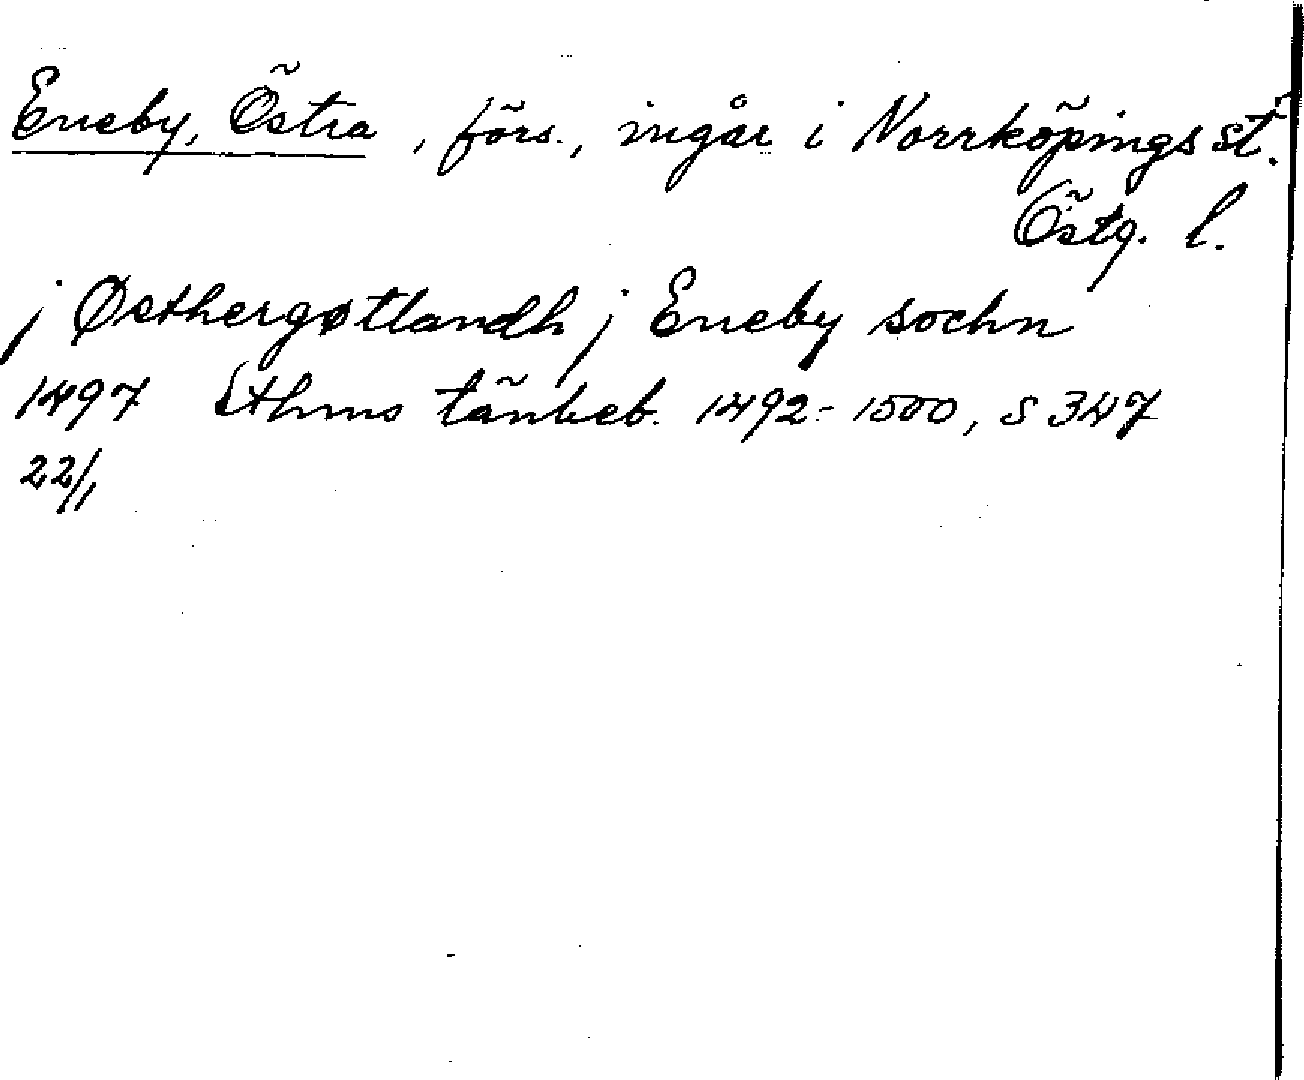 Eneby, Östra, förs., ingår i Norrköpings st.
Östg. l.
j Østhergøtlandh j Eneby sochn
1497 Sthms tänkeb. 1492-1500, s 347
22/1